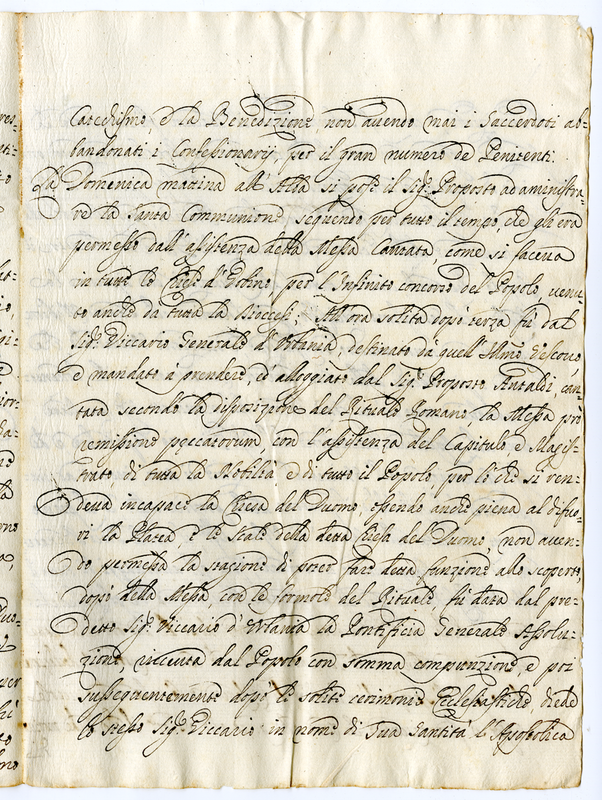 Catechismo, e la Benedizione, non avendo mai i Saccerdoti ab=
bandonati i Confessionarij, per il gran numero de Penitenti.
La Domenica matina all' Alba si pose il Sig.r Proposto ad aministra=
re la Santa Communione, seguendo per tutto il tempo, che gli era
permesso dall' assistenza della Messa Cantata, come si faceva
in tutte le Chiese d' Urbino per l' Infinito concorso del Popolo, venu
to anche da tutta la Diocesi; All' ora solita dopo terza fù dal
Sig.r Viccario Generale d' Urbania, destinato da quell' Ill.mo Vescovo,
e mandato a prendere, et alloggiato dal Sig.r Proposto Antaldi, can=
tata secondo la disposizione del Rituale Romano, la Messa prò
remissione peccatorum con l' assistenza del Capitulo e Magis=
trato di tutta la Nobiltà e di tutto il Popolo, per lo che si ren=
deva incapace la Chiesa del Duomo, essendo anche piena al difuo=
ri la Platea, e le Scale della detta Chiesa del Duomo, non aven=
do permessa la stagione di poter fare detta funzione allo scoperto,
dopo della Messa con le formole del Rituale fù data dal pre=
detto Sig.r Viccario d' Urbania la Pontificia Generale Assolu=
zione ricevuta dal Popolo con somma compunzione, e poi
susseguentemente dopo le solite cerimonie Ecclesiastiche diede
lo stesso Sig.r Viccario in nome di Sua Santità l' Apostolica